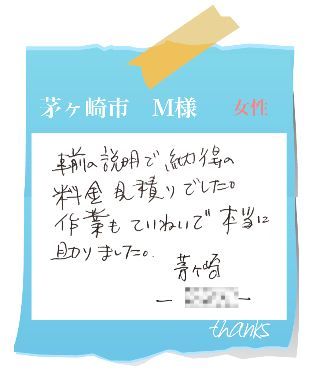 茅ヶ崎市　M様　女性
事前の説明で納得の
料金見積りでした。
作業もていねいで本当に
助りました。
茅ヶ崎
thanks